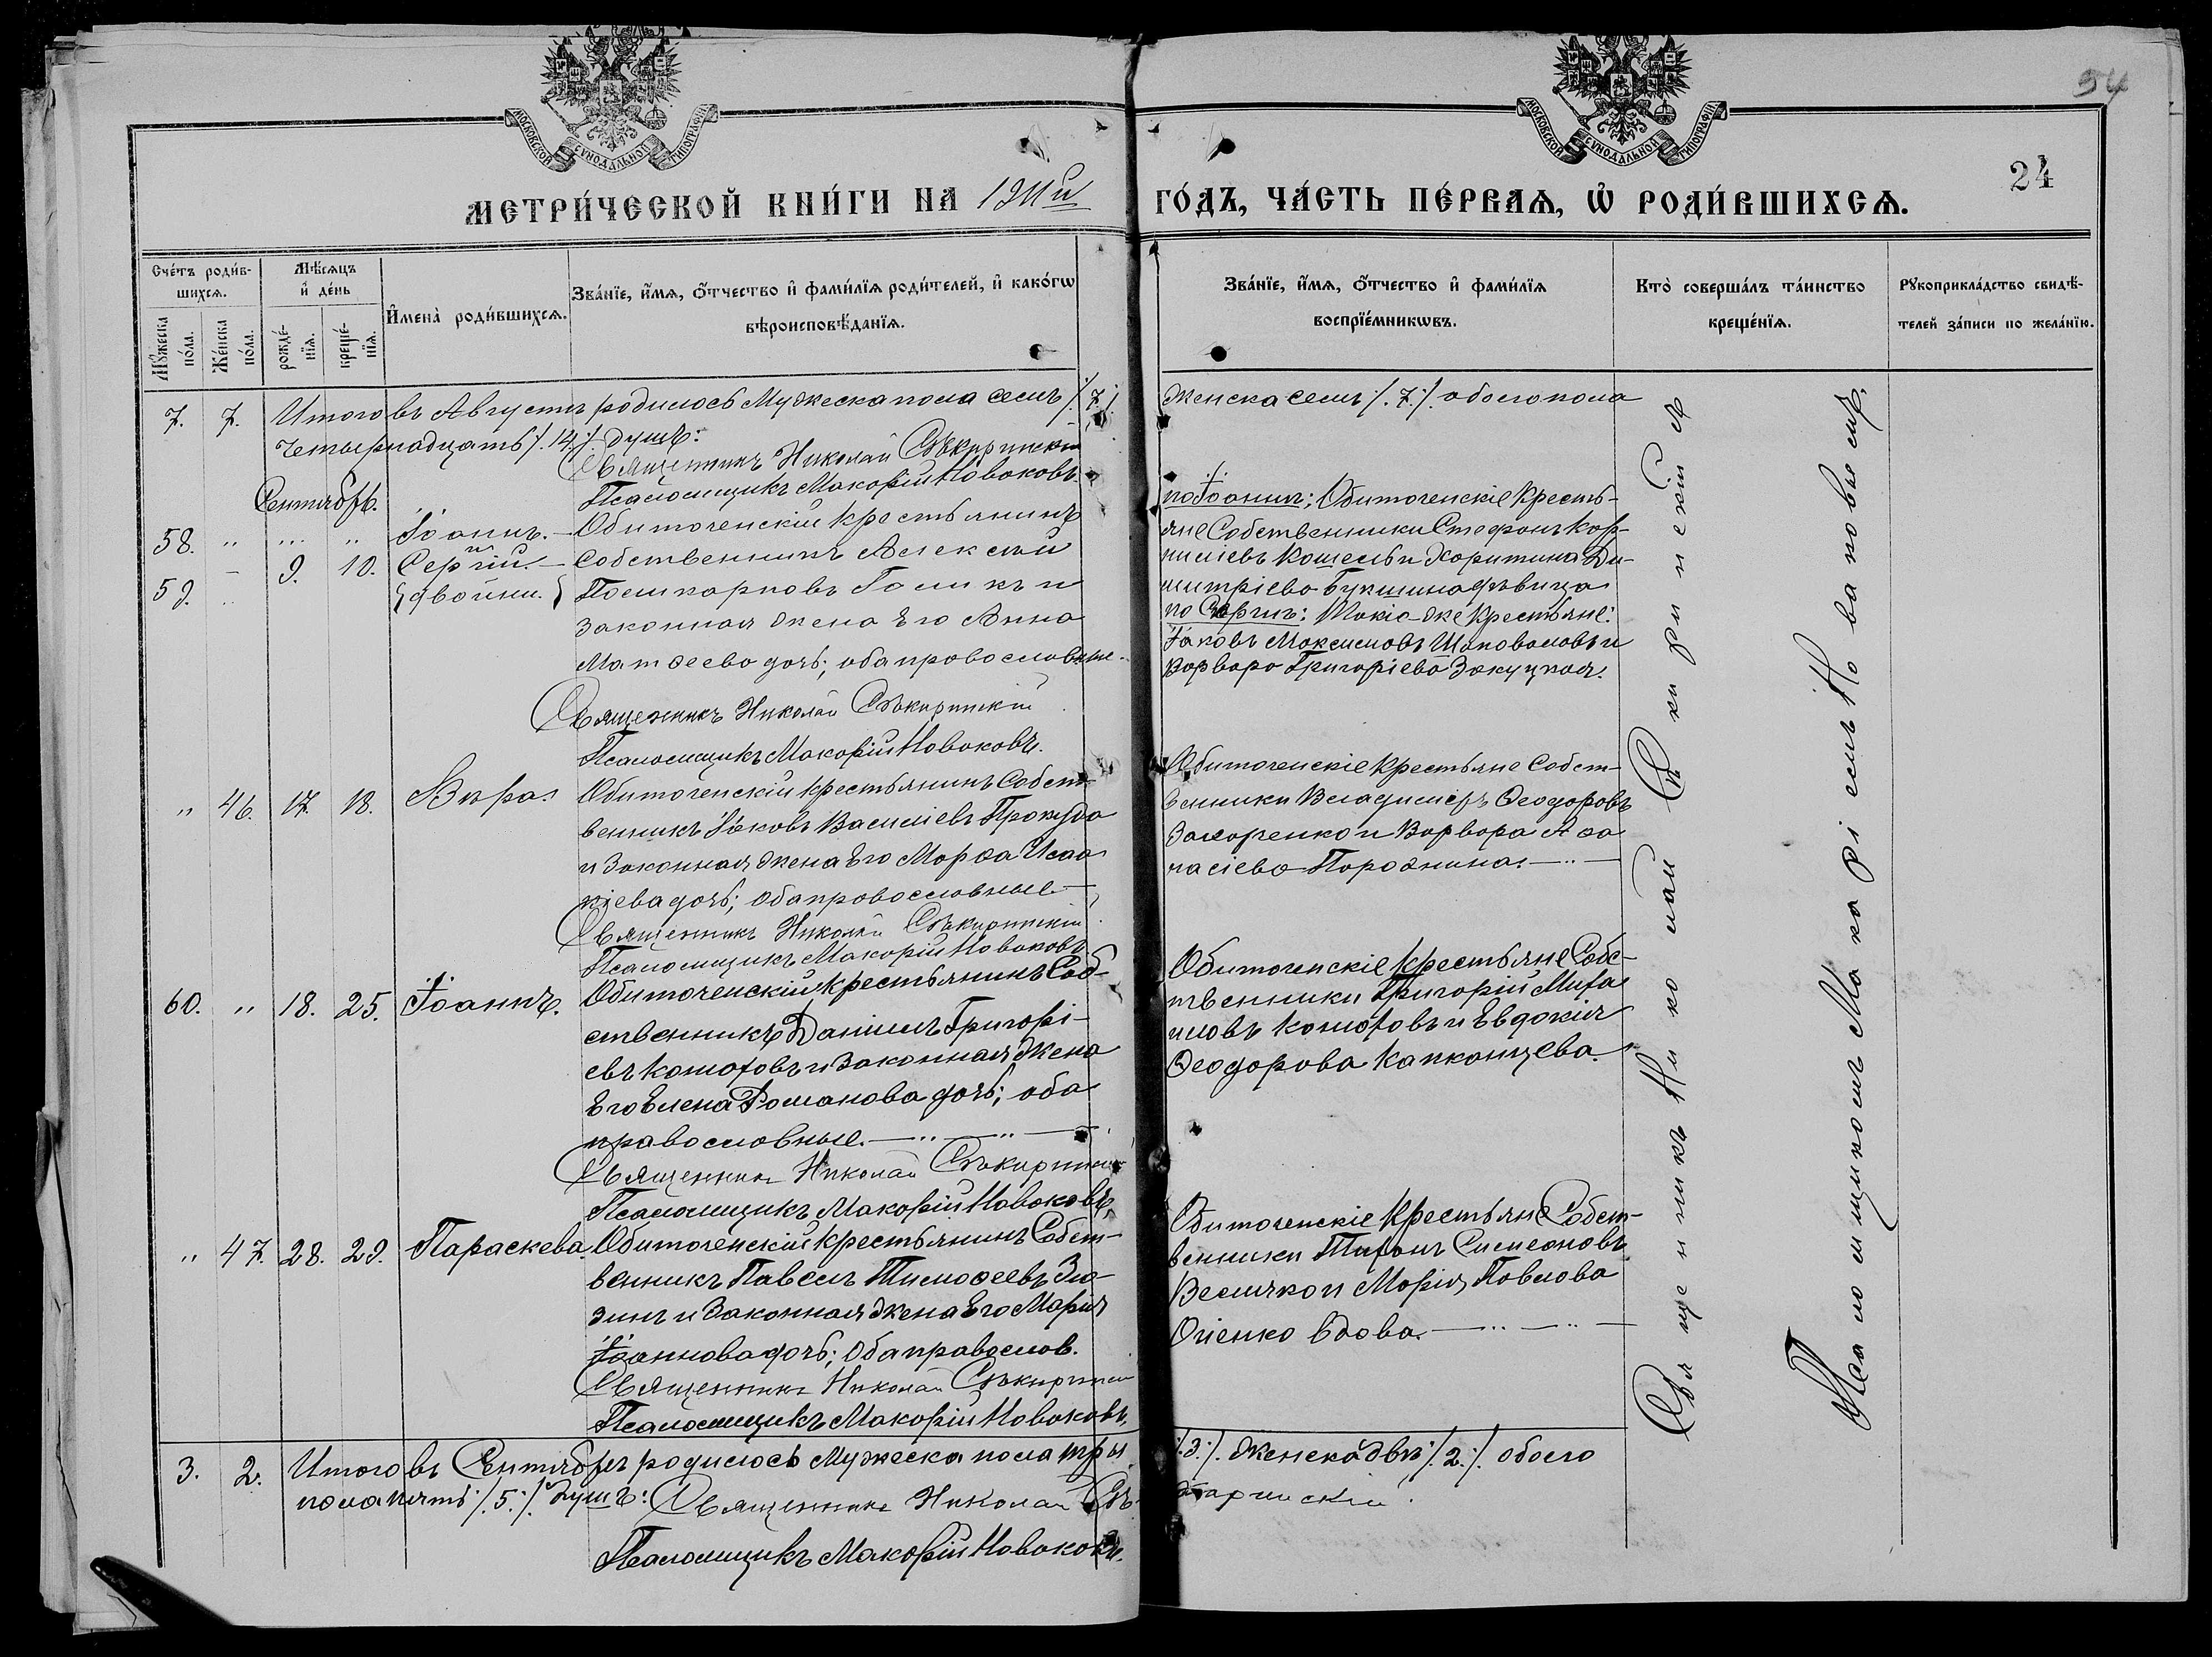 МОСКОВСКОЙ СѴНОДАЛЬНОЙ ТИПОГРАФІИ
МОСКОВСКОЙ СѴНОДАЛЬНОЙ ТИПОГРАФІИ
94
24
МЕТРИ́ЧЕСКОЙ КНИ́ГИ НА 1911й ГО́ДЪ, ЧА́СТЬ ПЕ́РВАѦ, Ѡ҆ РОДИ́ВШИХСѦ.
Сче́тъ роди́в-
шихсѧ.
Мꙋ́жеска по́ла.
Же́нска по́ла.
Мѣ́сѧцъ
и҆ де́нь
рожде́-
нїѧ.
креще́-
нїѧ.
И҆мена̀ роди́вшихсѧ.
Зва́нїе, и҆́мѧ, ѻ҆́тчество и҆ фами́лїѧ роди́телей, и҆ како́гѡ
вѣроисповѣ́данїѧ.
Зва́нїе, и҆́мѧ, ѻ҆́тчество и҆ фами́лїѧ
воспрїе́мникѡвъ.
Кто̀ соверша́лъ та́инство
креще́нїѧ.
Рꙋкоприкла́дство свидѣ́-
телей за́писи по жела́нїю.
7. 7. Итого въ Августѣ родилось Мужеска пола семь /:7:/ женска семь /:7:/ обоего пола
четырнадцать /:14:/ душъ:
Священникъ Николай Сѣкиринскій
Псаломщикъ Макарій Новаковъ.
Сентябрь.
58. „ ... „ Іоаннъ.
59. „ 9. 10. Сергій.
{двойни.}
Обиточенскій крестьянинъ
собственникъ Алексѣй
Поликарповъ Голикъ и
законная жена Его Анна
Матѳеева дочь; оба православные.
Священникъ Николай Сѣкиринскій
Псаломщикъ Макарій Новаковъ.
по Іоаннѣ: Обиточенскіе Кресть-
яне Собственники Стефанъ Кор-
ниліевъ Кошель и Харитина Ди-
митріева Букшина дѣвица
по Сергіѣ: Такіе-же Крестьяне:
Іаковъ Максимовъ Шаповаловъ и
Варвара Григоріева Закуцкая.
„ 46. 17. 18. Вѣра.
Обиточенскій крестьянинъ Собст-
венникъ Іаковъ Василіевъ Прокуда
и Законная жена Его Марѳа Исаа-
кіева дочь; оба православные
Священникъ Николай Сѣкиринскій
Псаломщикъ Макарій Новаковъ
Обиточенскіе крестьяне Собст-
венники Владиміръ Ѳеодоровъ
Захоренко и Варвара Аѳа-
насіева Порожнина.
60. „ 18. 25. Іоаннъ.
Обиточенскій крестьянинъ Соб-
ственникъ Даніилъ Григорі-
евъ Комотовъ и Законная жена
Его Елена Романова дочь; оба
православные.
Священникъ Николай Сѣкиринскій
Псаломщикъ Макарій Новаковъ.
Обиточенскіе крестьяне Собс-
твенники Григорій Миха
иловъ и Евдокія
Ѳеодорова Капканцева.
„ 47. 28. 29. Параскева.
Обиточенскій крестьянинъ Собст-
венникъ Павелъ Тимоѳеевъ Зю-
зинъ и Законная жена Его Марія
Іоаннова дочь; Оба православ.
Священникъ Николай Сѣкиринскій
Псаломщикъ Макарій Новаковъ.
Обиточенскіе Крестьяне Собст-
венники Тихонъ Симеоновъ
Величко и Марія Павлова
Огіенко вдова.
Священникъ Николай Сѣкиринскій
Псаломщикомъ Макаріемъ Новаковымъ.
3. 2. Итого въ Сентябрѣ родилось Мужеска пола три /:3:/ женска двѣ /:2:/ обоего
пола пять /:5:/ душъ: Священникъ Николай Сѣкиринскій
Псаломщикъ Макарій Новаковъ.